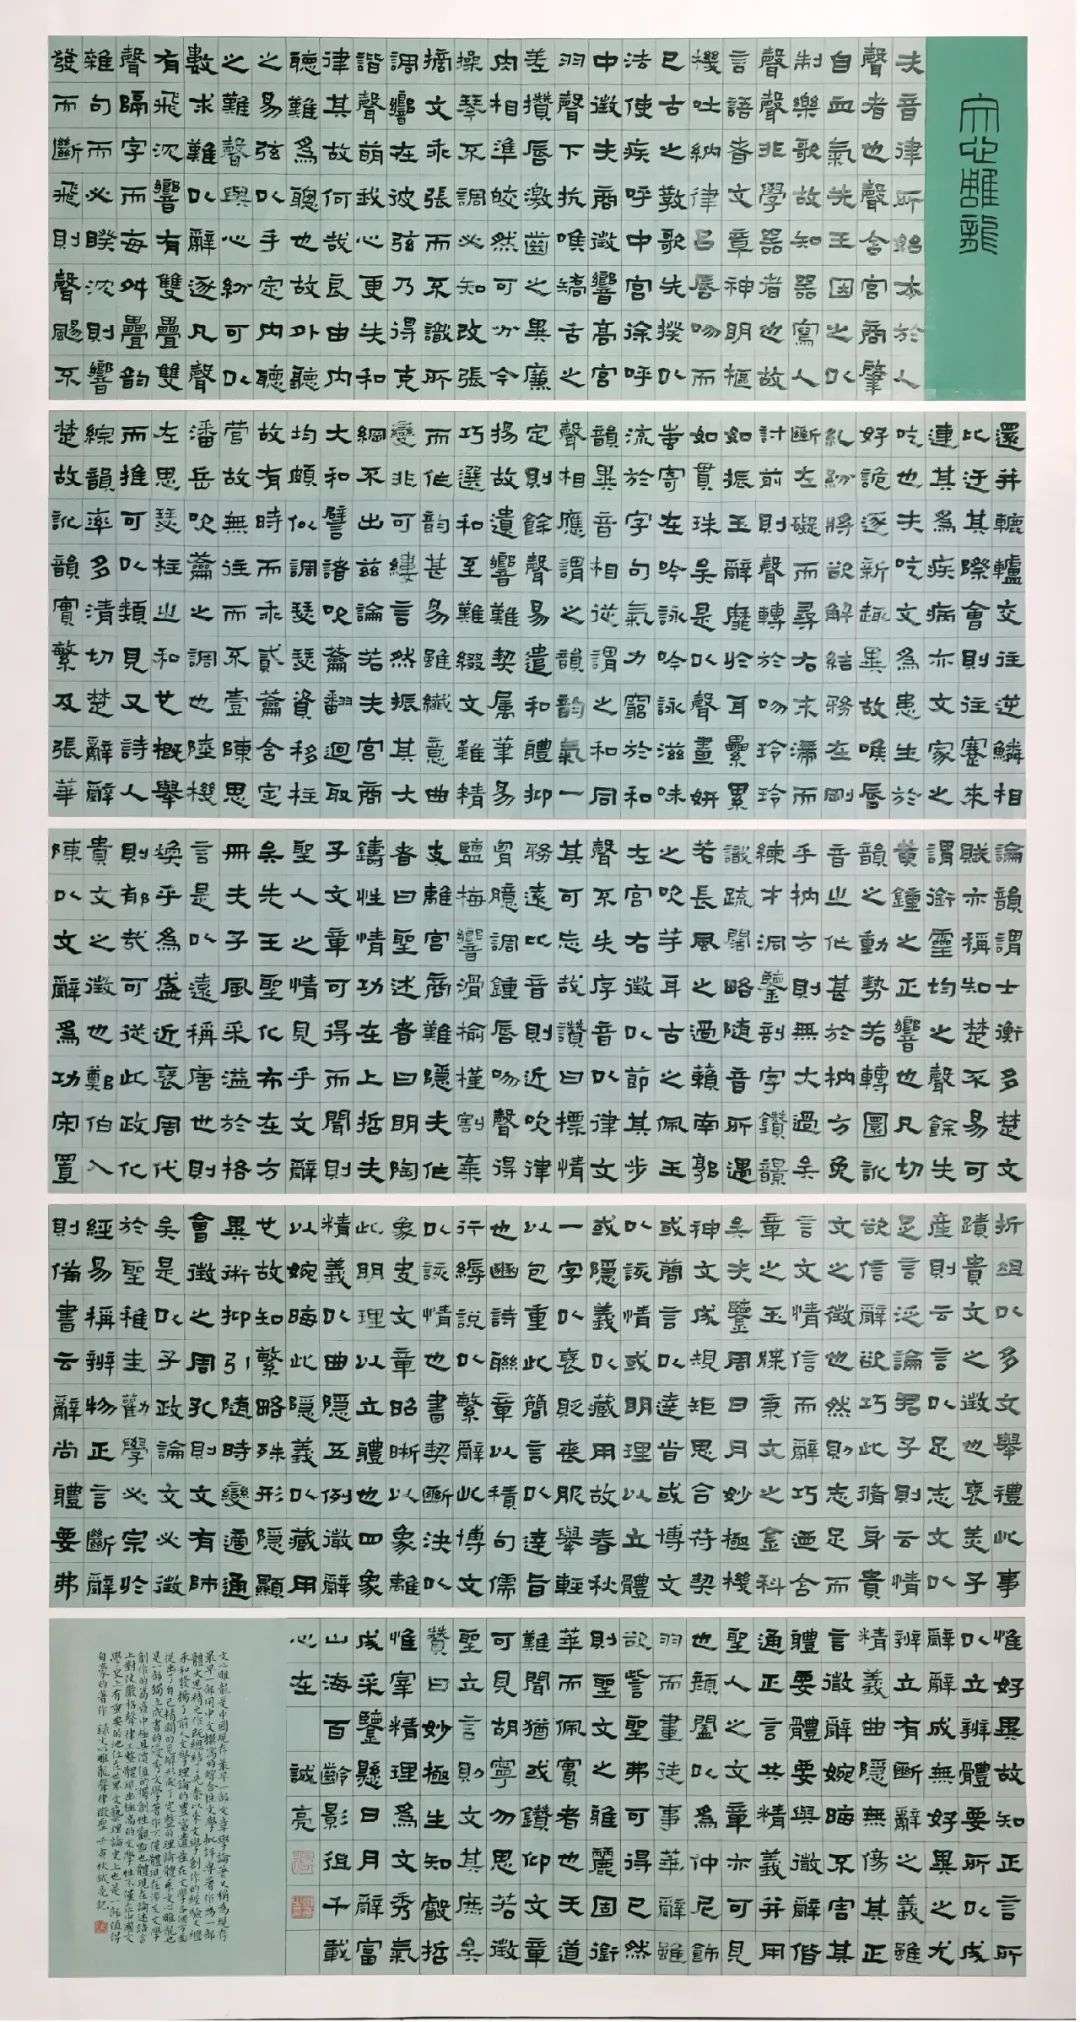 文心雕龍
夫音律所始本於人
聲者也聲含宮商肇
自血氣先王因之以
制樂歌故知器寫人
聲聲非學器者也故
言語者文章神明樞
機吐納律呂唇吻而
已古之教歌先揆以
法使疾呼中宮徐呼
中徵夫商徵響高宮
羽聲下抗喉矯舌之
差攢唇激齒之異廉
肉相準皎然可分今
操琴不調必知改張
摘文乖張而不識所
調響在彼弦乃得克
諧聲萌我心更失和
律其故何哉良由內
聽難為聰也故外聽
之易弦以手定內聽
之難聲與心紛可以
數求難以辭逐凡聲
有飛沈響有雙疊雙
聲隔字而每舛疊韵
雜句而必睽沈則響
發而斷飛則聲颺不
還并轆轤交往逆鱗相
比迂其際會則往蹇來
連其為疾病亦文家之
吃也夫吃文為患生於
好詭逐新趣異故喉唇
糺紛將欲解結務在剛
斷左礙而尋右末滯而
計前則聲轉於吻玲玲
如振玉辭靡於耳纍累
如貫珠矣是以聲畫妍
蚩寄在吟詠吟詠滋味
流於字句氣力窮於和
韻異音相從謂之和同
聲相應謂之韻韵氣一
定則餘聲易遣和體抑
揚故遺響難契属筆易
巧選和至難綴文難精
而作韵甚易雖纖意曲
變非可縷言然振其大
綱不出茲論若夫宮商
大和譬諸吹籥翻迴取
均頗似調瑟瑟資移柱
故有時而乖貳籥含定
管故無往而不壹陳思
潘岳吹籥之調也陸機
左思瑟柱之和也概舉
而推可以類見又詩人
綜韻率多清切楚辭辭
楚故訛韻實繁及張華
論韻謂士衡多楚文
賦亦稱知楚不易可
謂銜靈均之聲餘失
黃鍾之正響也凡切
韻之動勢若轉圜訛
音之作甚於枘方免
乎枘方則無大過矣
練才洞鑒剖字鑽韻
識疏闊略隨音所遇
若長風之過籟南郭
之吹竽耳古之佩玉
左宮右徵以節其步
聲不失序音以律文
其可忘哉讚曰標情
務遠比音則近吹律
胷臆調鍾唇吻聲得
鹽梅響滑榆槿割棄
支離宮商難隱夫作
者曰聖述者曰明陶
鑄性情功在上哲夫
子文章可得而聞則
聖人之情見乎文辭
矣先王聖化布在方
冊夫子風采溢於格
言是以遠稱唐世則
煥乎為盛近褒周代
則郁哉可從此政化
貴文之徵也鄭伯入
陳以文辭為功宋置
折俎以多文舉禮此事
蹟貴文之徵也褒美子
產則云言以足志文以
足言泛論君子則云情
欲信辭欲巧此脩身貴
文之徵也然則志足而
言文情信而辭巧迺含
章之玉牒秉文之金科
矣夫鑒周日月妙極機
神文成規矩思合符契
或簡言以達旨或博文
以該情或明理以立體
或隱義以藏用故春秋
一字以褒貶喪服舉輕
以包重此簡言以達旨
也豳詩聯章以積句儒
行縟說以繁辭此博文
以該情也書契斷決以
象夬文章昭晰以象離
此明理以立體也四象
精義以曲隱五例微辭
以婉晦此隱義以藏用
也故知繁略殊形隱顯
異術抑引隨時變適通
會徵之周孔則文有師
矣是以子政論文必徵
於聖稚圭勸學必宗於
經易稱辨物正言斷辭
則備書云辭尚體要弗
惟好異故知正言所
以立辨體要所以成
辭辭成無好異之尤
辨立有斷辭之義雖
精義曲隱無傷其正
言微辭婉晦不害其
體要體要與微辭偕
通正言共精義并用
聖人之文章亦可見
也顏闔以為仲尼飾
羽而畫徒事華辭雖
欲訾聖弗可得已然
則聖文之雅麗固銜
華而佩實者也天道
難聞猶或鑽仰文章
可見胡寧勿思若徵
聖立言則文其庶矣
贊曰妙極生知叡哲
惟宰精理為文秀氣
成采鑒懸日月辭富
山海百齡影徂千載
心在 誠亮
文心雕龍是中國現存最早一部文章學論著又稱為現存
最早一部用中文撰寫的綜合性文學批評專著作為一部
體大思精之作